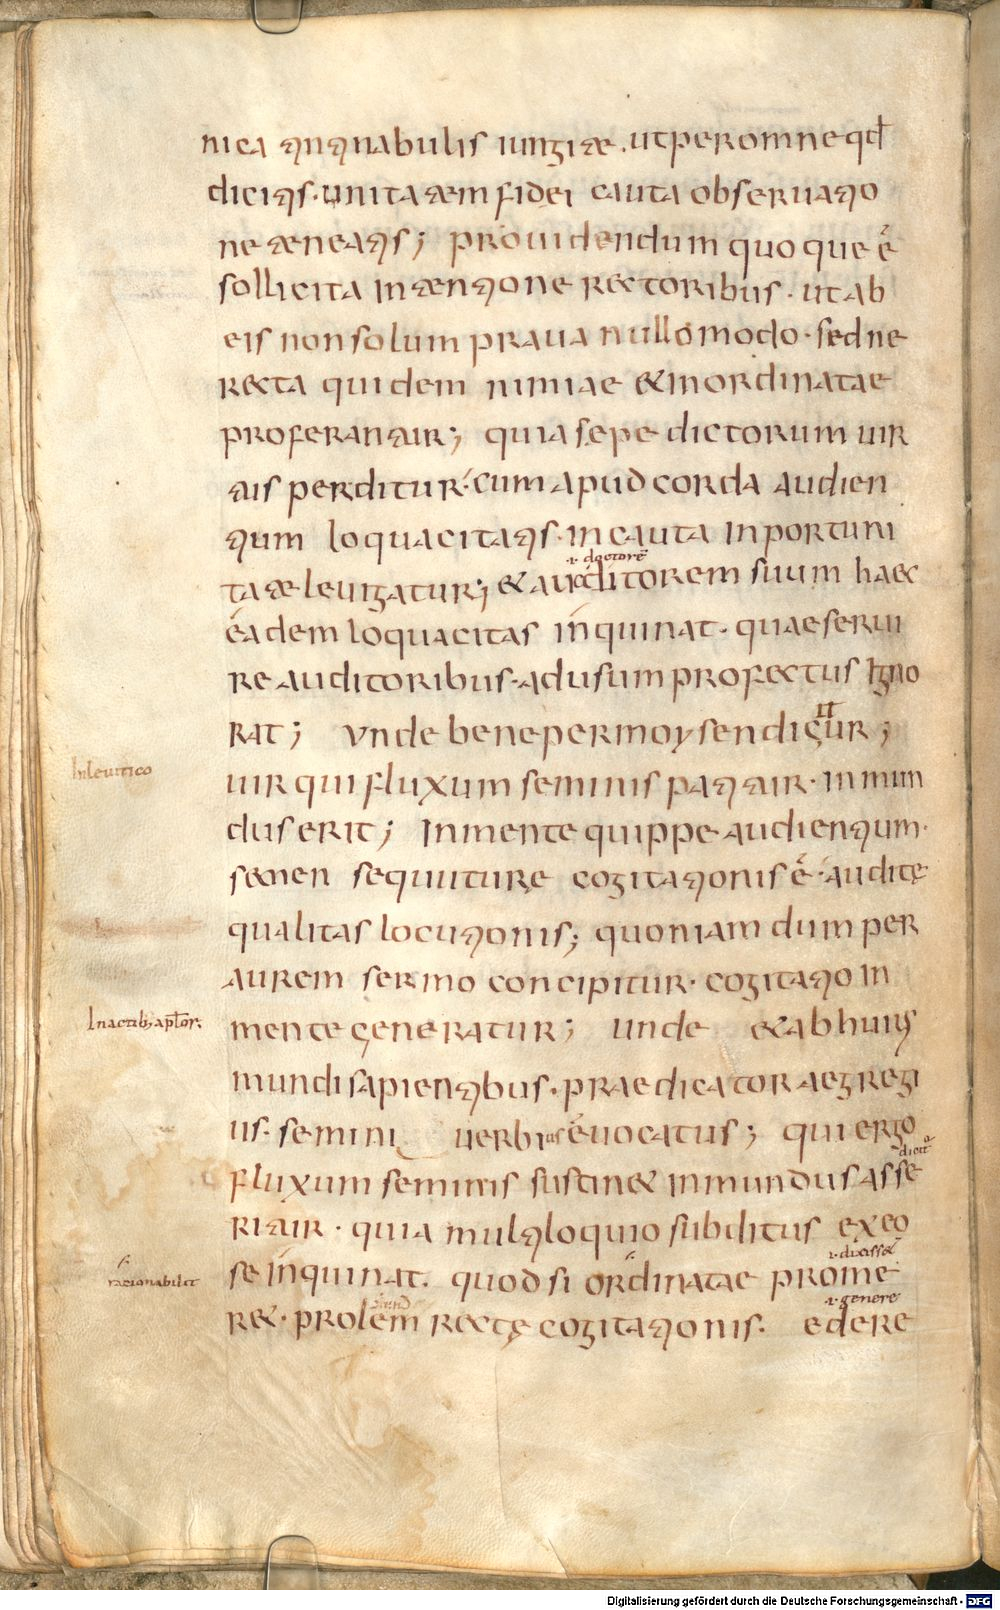 nica tintinabulis iungite. ut per omne qđ
dicitis. unitatem fidei cauta obseruatio
ne teneatis; prouidendum quoque ē
sollicita intentione rectoribus. ut ab
eis non solum praua nullo modo. sed ne
recta quidem nimiae & inordinatae
proferantur; quia sepe dictorum uir
tus perditur. cum apud corda audien
tium loquacitatis. incauta inportuni
tate leuigatur; & auditorem suum haec
.i. doctorē
eadem loquacitas inquinat. quae serui
re auditoribus. ad usum profectus igno
rat; Vnde bene per moysen dicitur;
In leuitico
uir qui fluxum seminis patitur. inmun
dus erit; In mente quippe audientium.
semen sequuture cogitationis ē. auditę
qualitas locutionis; quoniam dum per
aurem sermo concipitur. cogitatio in
In actib; aptor.
mente generatur; unde & ab huius
mundi sapientibus. praedicator aegregi
us. semini uerbius euocatus; qui ergo
fluxum seminis sustin& inmundus asse
ritur. quia multiloquio subditus ex eo
se inquinat. quod si ordinatae prome
racionabilit
r&. prolem rectę cogitationis. edere
.i. genere